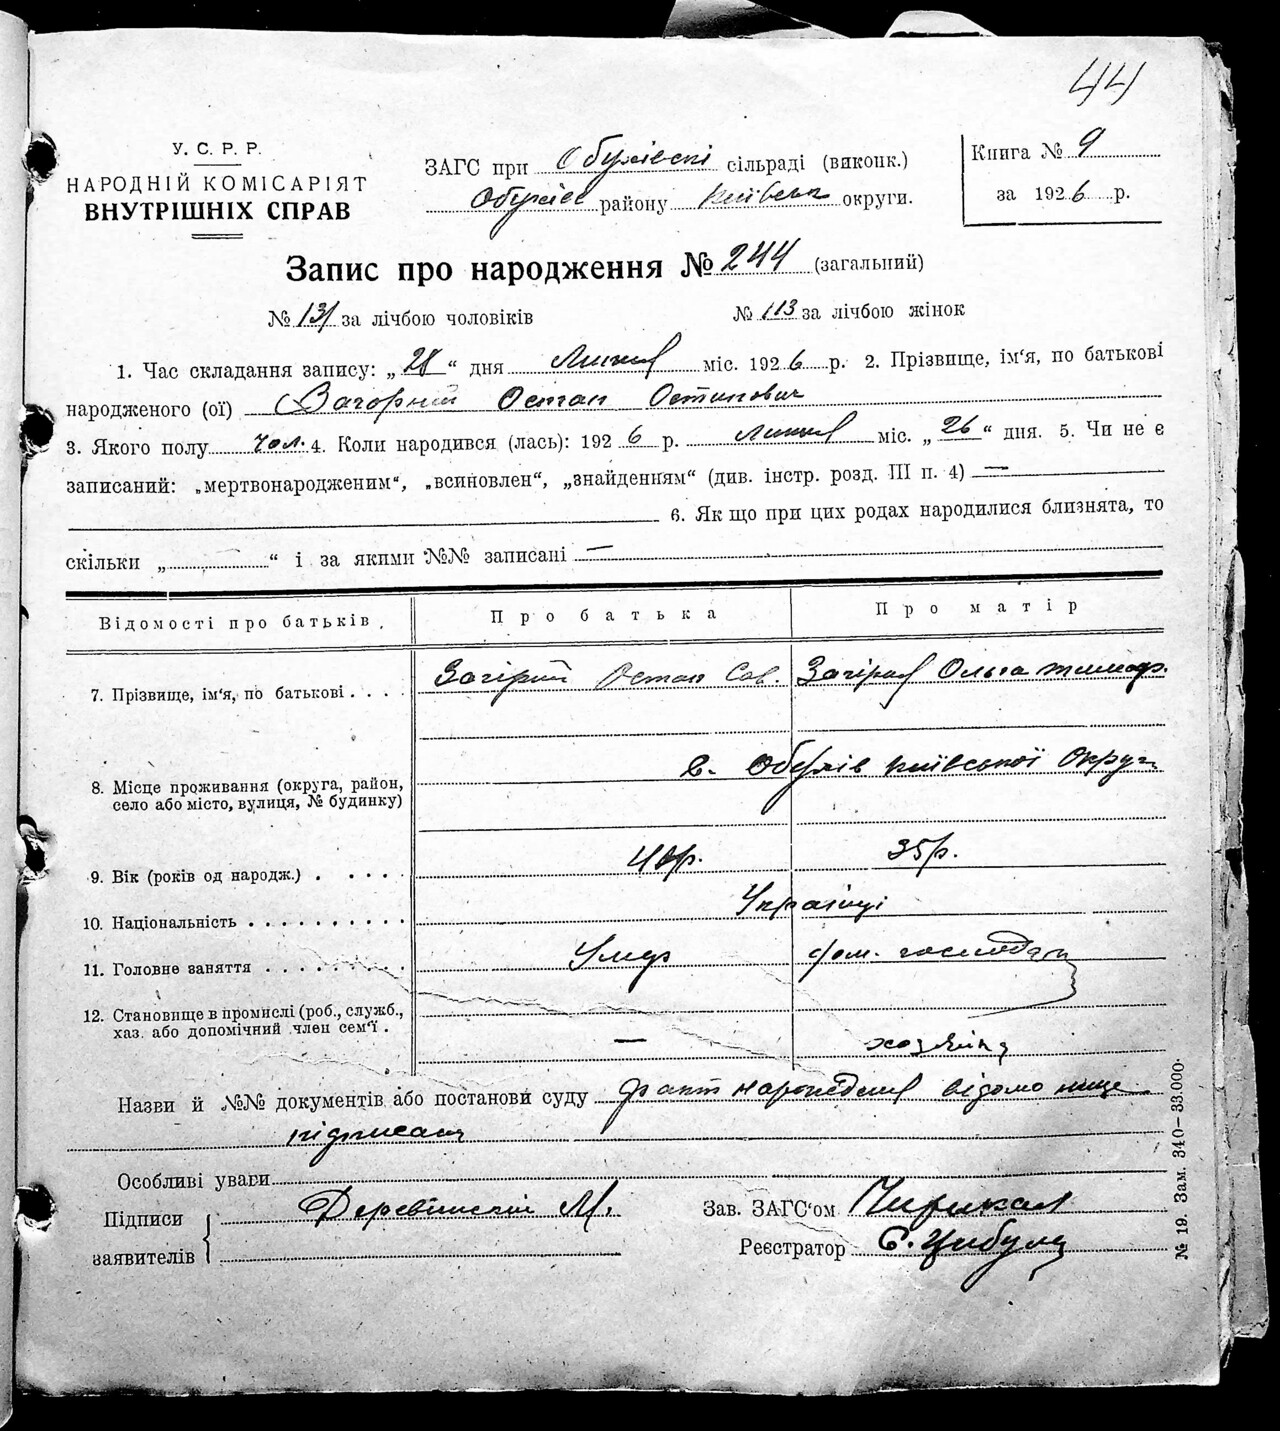 44
У. С. Р. Р.
НАРОДНІЙ КОМІСАРІЯТ
ВНУТРІШНІХ СПРАВ
ЗАГС при Обухівскі сільраді (виконк.)
Обухівс району Київськ округи.
Книга № 9
за 1926 р.
Запис про народження № 244 (загальний)
№ 131 за лічбою чоловіків № 113 за лічбою жінок
1. Час складання запису: „28“ дня Липня міс. 1926 р. 2. Прізвище, ім‘я, по батькові
народженого (ої) Загорній Остап Остапович
3. Якого полу чол. 4. Коли народився (лась): 1926 р. Липня міс. „26“ дня. 5. Чи не є
записаний: „мертвонародженим“, „всиновлен“, „знайденням“ (див. інстр. розд. III п. 4) —
6. Як що при цих родах народилися близнята, то
скільки „ “ і за якими №№ записані —
Відомості про батьків. Про батька Про матір
7. Прізвище, ім‘я, по батькові . . . . Загірній Остап Сав. Загірня Ольга Тимоф.
8. Місце проживання (округа, район, село або місто, вулиця, № будинку) с. Обухів Київської Округи
9. Вік (років од народж.) . . . . . 40р. 35р.
10. Національність . . . . . . . . . . Українці
11. Головне заняття . . . . . . . . . дом. господар
12. Становище в промислі (роб., служб., хаз. або допомічний член сем‘ї . — хозяїна
Назви й №№ документів або постанови суду факт народження відомо нище
підписаня
Особливі уваги
Підписи заявителів Деревінскій М.
Зав. ЗАГС‘ом
Реєстратор Є. Цибуля
№ 19. Зам. 340—33.000.